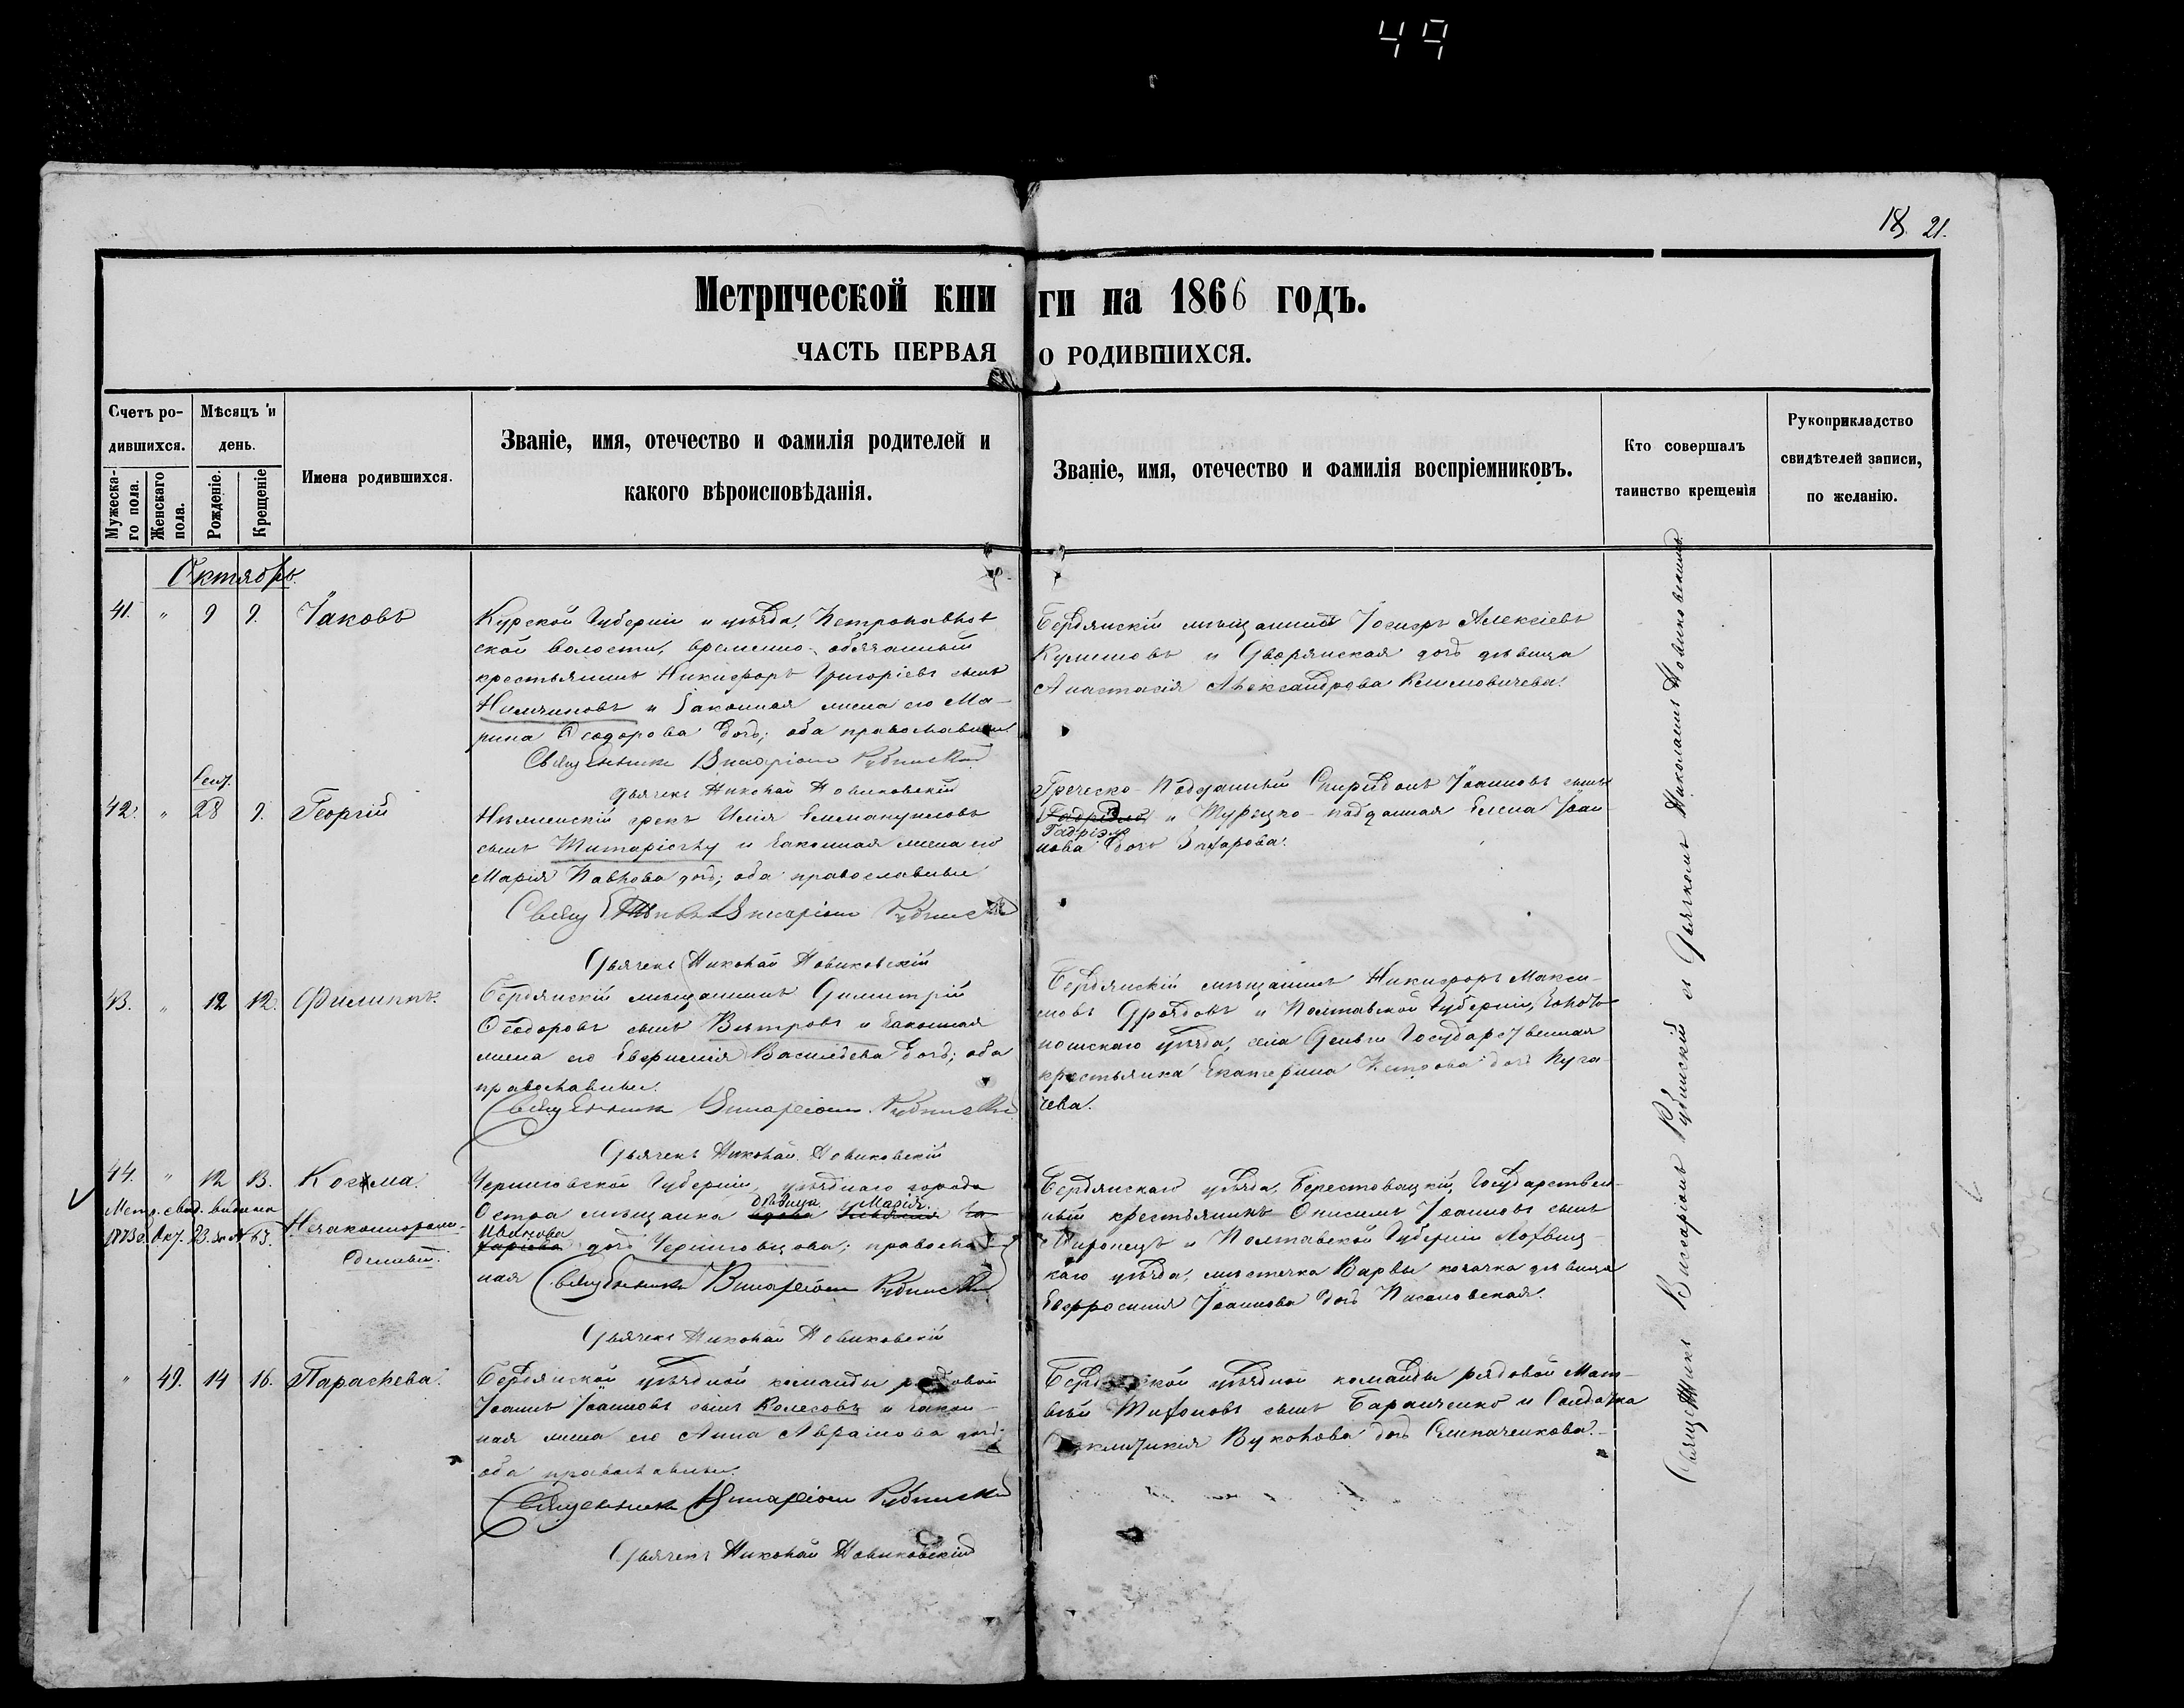 49
18. 21.
Метрической книги на 1866 годъ.
ЧАСТЬ ПЕРВАЯ О РОДИВШИХСЯ.
Счетъ родившихся.
Мужескаго пола.
Женскаго пола.
Мѣсяцъ и день.
Рожденіе.
Крещеніе
Имена родившихся.
Званіе, имя, отечество и фамилія родителей и
какого вѣроисповѣданія.
Званіе, имя, отечество и фамилія воспріемниковъ.
Кто совершалъ
таинство крещенія
Рукоприкладство
свидѣтелей записи,
по желанію.
Октябрь.
41. " 9 9. Іаковъ
Курской Губерніи и уѣзда,
ской волости, временно-обязанный
крестьянинъ Никифоръ Григоріевъ сынъ
и законная жена его Ма-
рина Ѳеодорова дочь; оба православные
Священникъ Виссаріонъ Рубинскій
Дьячекъ Николай Новиковскій
Бердянскій мѣщанинъ Іосифъ Алексіевъ
Кулешовъ и Дворянская дочь дѣвица
Анастасія Александрова Климовичева.
42. " Сент. 28 9. Георгій
Нѣжинскій грекъ Илія Еммануиловъ
сынъ и законная жена его
Марія Павлова дочь; оба православные
Священникъ Виссаріонъ Рубинскій
Дьячекъ Николай Новиковскій
Греческо-Подданный Спиридонъ Іоанновъ сынъ
и Турецко-подданная Елена Іоан-
нова дочь Захарова.
43. " 12 12. Филиппъ.
Бердянскій мѣщанинъ Димитрій
Ѳеодоровъ сынъ Вѣтровъ и законная
жена его Евфимія Васильева дочь; оба
православные.
Священникъ Виссаріонъ Рубинскій
Дьячекъ Николай Новиковскій
Бердянскій мѣщанинъ Никифоръ Макси-
мовъ Дроздовъ и Полтавской Губерніи, Золото-
ношскаго уѣзда, села Деньги Государственная
крестьянка Екатерина Петрова дочь Пуга-
чева.
44. " 12 13. Косма.
Незаконнорож-
денный.
Метр. свид. выдано
1873 г. Окт. 23. за № 63.
Черниговской Губерніи, уѣзднаго города
Остра мѣщанка дѣвица Марія
Иванова дочь Черниговцова; православ-
ная Священникъ Виссаріонъ Рубинскій
Дьячекъ Николай Новиковскій
Бердянскаго уѣзда, Берестовацкій, Государствен-
ный крестьянинъ Онисимъ Іоанновъ сынъ
Миронецъ и Полтавской Губерніи Лохвиц-
каго уѣзда, мѣстечка Варвы козачка дѣвица
Евфросинія Іоаннова дочь
" 49. 14 16. Параскева.
Бердянской уѣздной команды рядовой
Іоаннъ Іоанновъ сынъ Колесовъ и закон-
ная жена его Анна Авраамова дочь;
оба православные.
Священникъ Виссаріонъ Рубинскій
Дьячекъ Николай Новиковскій
Бердянской уѣздной команды рядовой Мат-
вѣй Тихоновъ сынъ Баранченко и Солдатка
Вуколова дочь
Священникъ Виссаріонъ Рубинскій съ Дьячкомъ Николаемъ Новиковскимъ